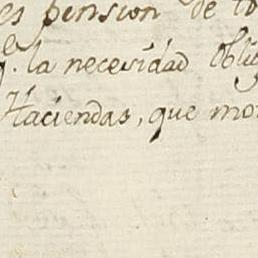 es pension de to
q. la necesidad obli
Haciendas, que mo